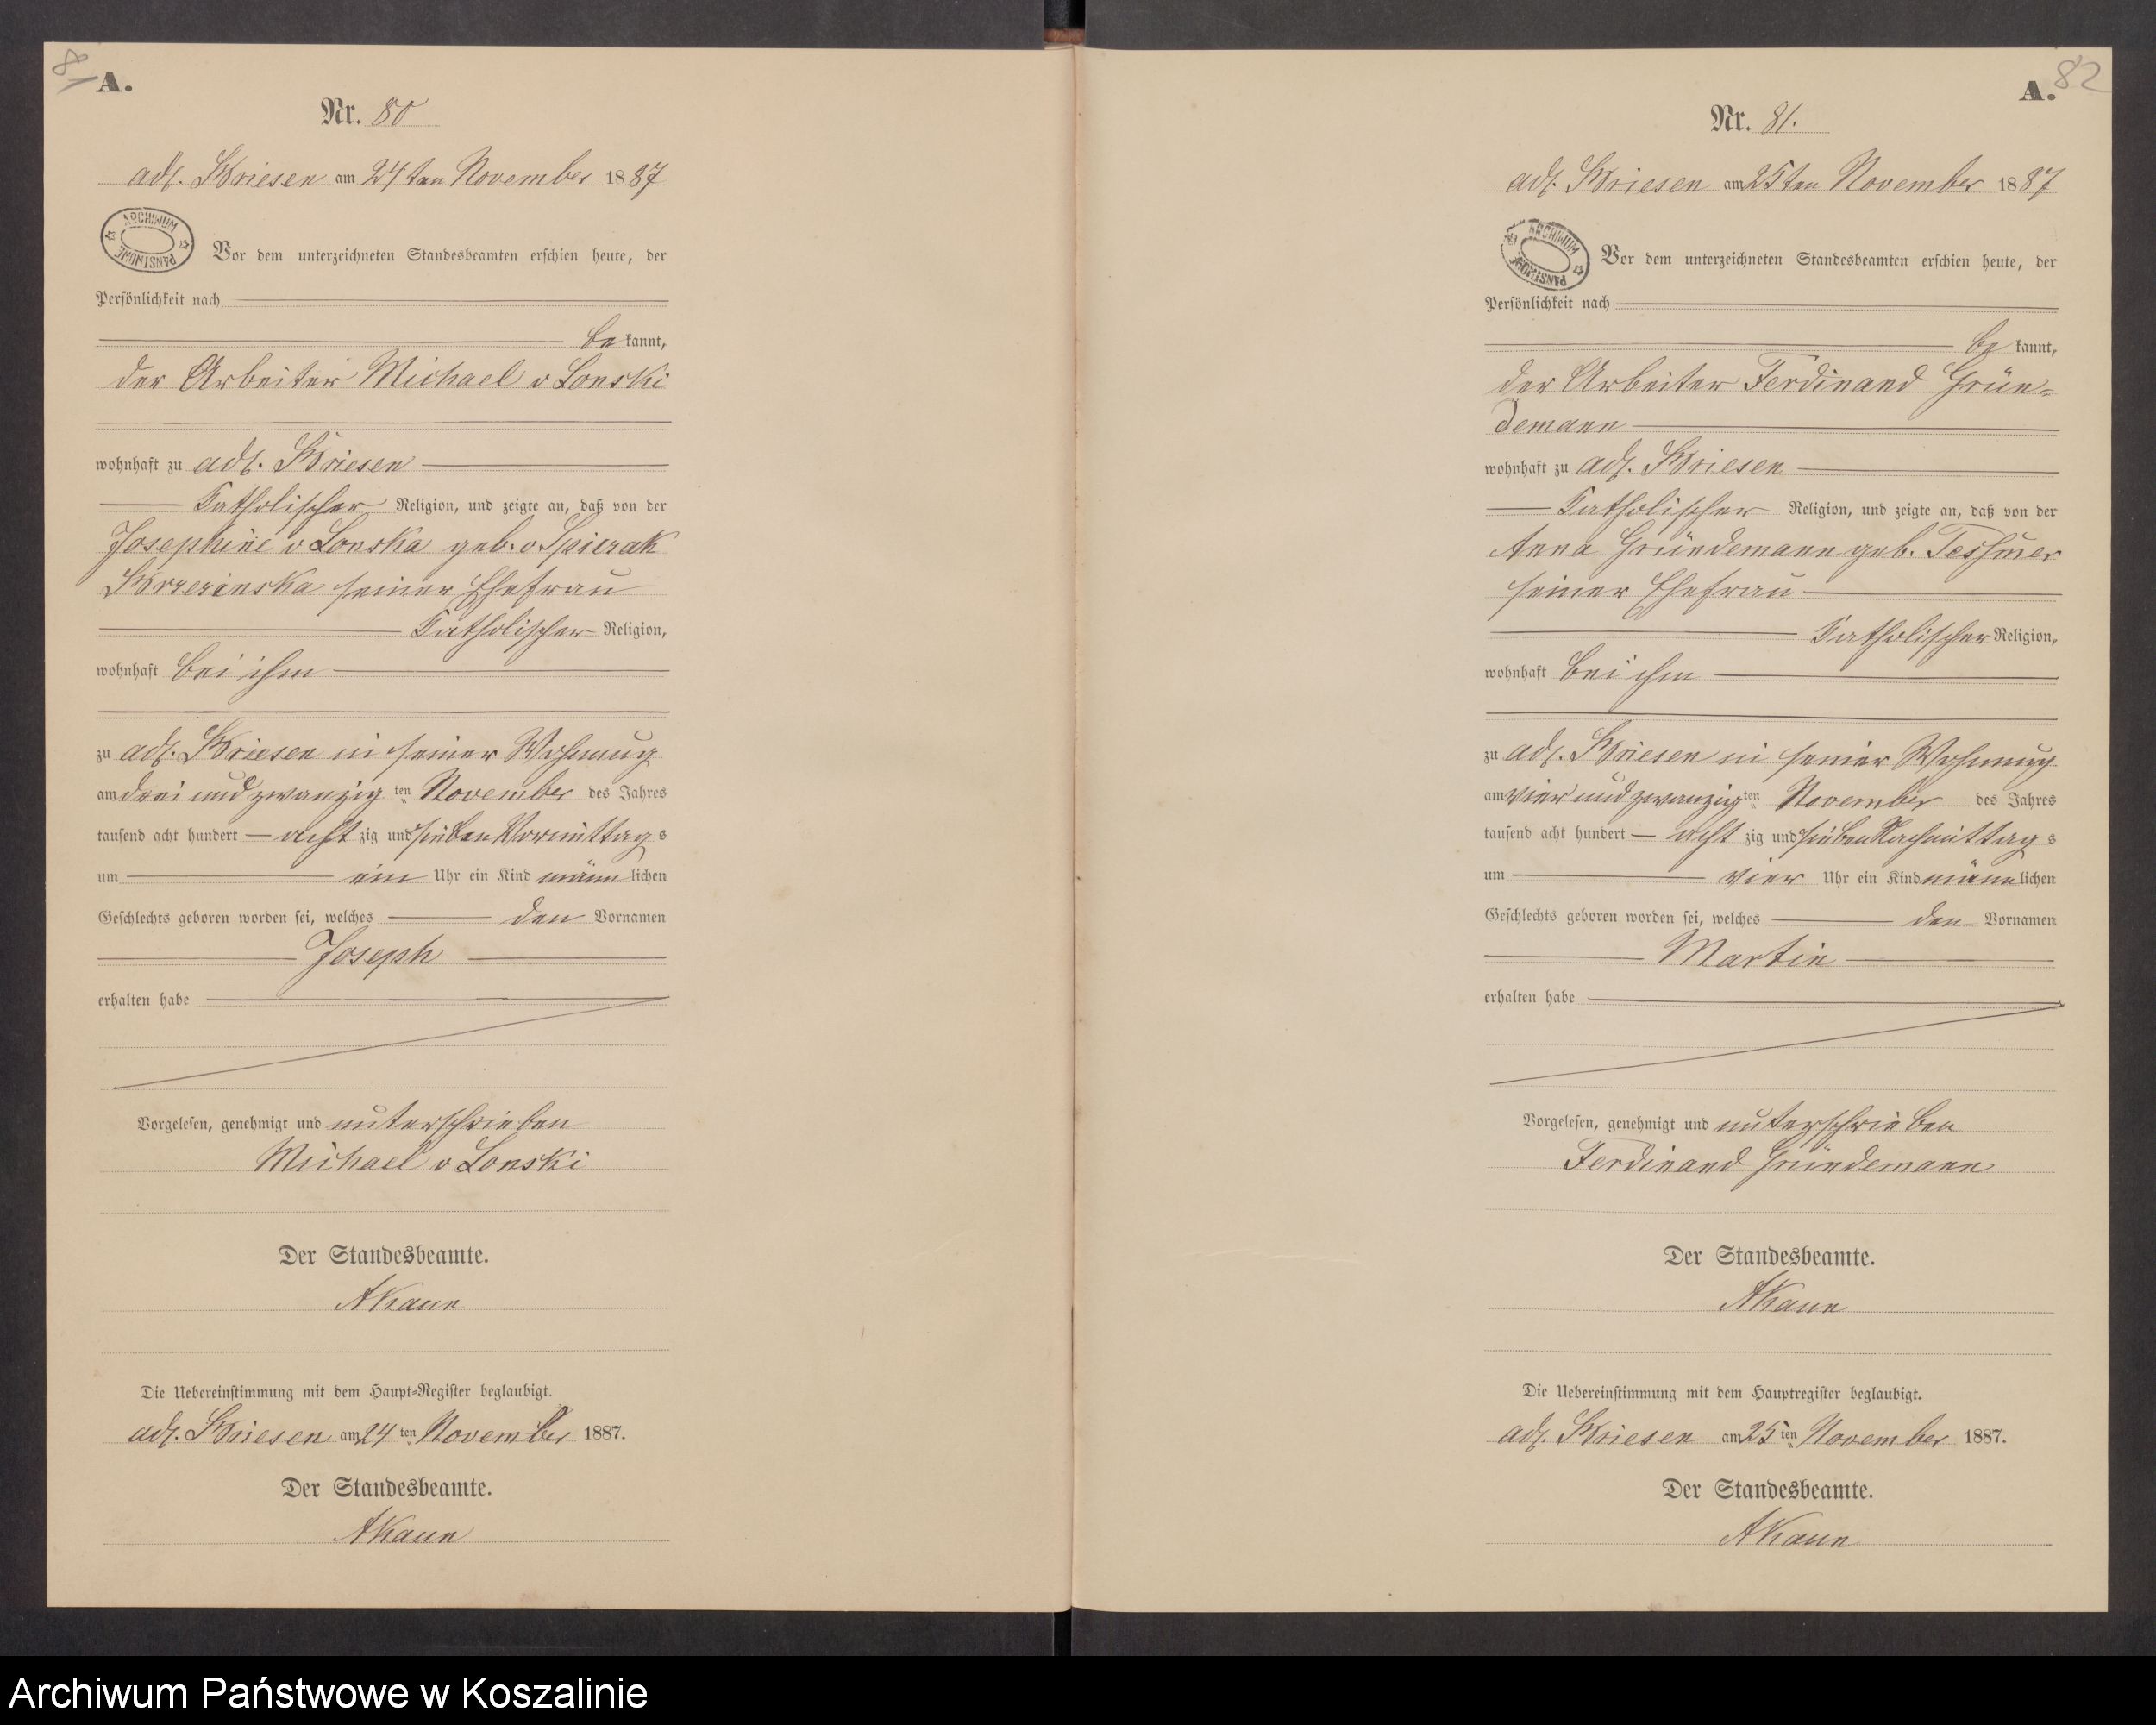 81
A.
Nr. 80
adl. Briesen am 24ten November 1887
ARCHIWUM PAŃSTWOWE
Vor dem unterzeichneten Standesbeamten erschien heute, der
Persönlichkeit nach
be kannt,
der Arbeiter Michael v Lonski
wohnhaft zu adl. Briesen
Katholischer Religion, und zeigte an, daß von der
Josephine v Lonska geb. v Spiczak
Brzezinska seiner Ehefrau
Katholischer Religion,
wohnhaft bei ihm
zu adl. Briesen in seiner Wohnung
am drei und zwanzig ten November des Jahres
tausend acht hundert acht zig und sieben Vormittag s
um ein Uhr ein Kind männ lichen
Geschlechts geboren worden sei, welches den Vornamen
Joseph
erhalten habe
Vorgelesen, genehmigt und unterschrieben
Michael v Lonski
Der Standesbeamte.
AKaun
Die Uebereinstimmung mit dem Haupt=Register beglaubigt.
adl. Briesen am 24 ten November 1887.
Der Standesbeamte.
AKaun
82
A.
Nr. 81.
adl. Briesen am 25ten November 1887
ARCHIWUM PAŃSTWOWE
Vor dem unterzeichneten Standesbeamten erschien heute, der
Persönlichkeit nach
be kannt,
der Arbeiter Ferdinand Grün=
demann
wohnhaft zu adl. Briesen
Katholischer Religion, und zeigte an, daß von der
Anna Gründemann geb. Teßmer
seiner Ehefrau
Katholischer Religion,
wohnhaft bei ihm
zu adl. Briesen in seiner Wohnung
am vier und zwanzig ten November des Jahres
tausend acht hundert acht zig und sieben Nachmittag s
um vier Uhr ein Kind männ lichen
Geschlechts geboren worden sei, welches den Vornamen
Martin
erhalten habe
Vorgelesen, genehmigt und unterschrieben
Ferdinand Gründemann
Der Standesbeamte.
AKaun
Die Uebereinstimmung mit dem Hauptregister beglaubigt.
adl. Briesen am 25 ten November 1887.
Der Standesbeamte.
AKaun
Archiwum Państwowe w Koszalinie